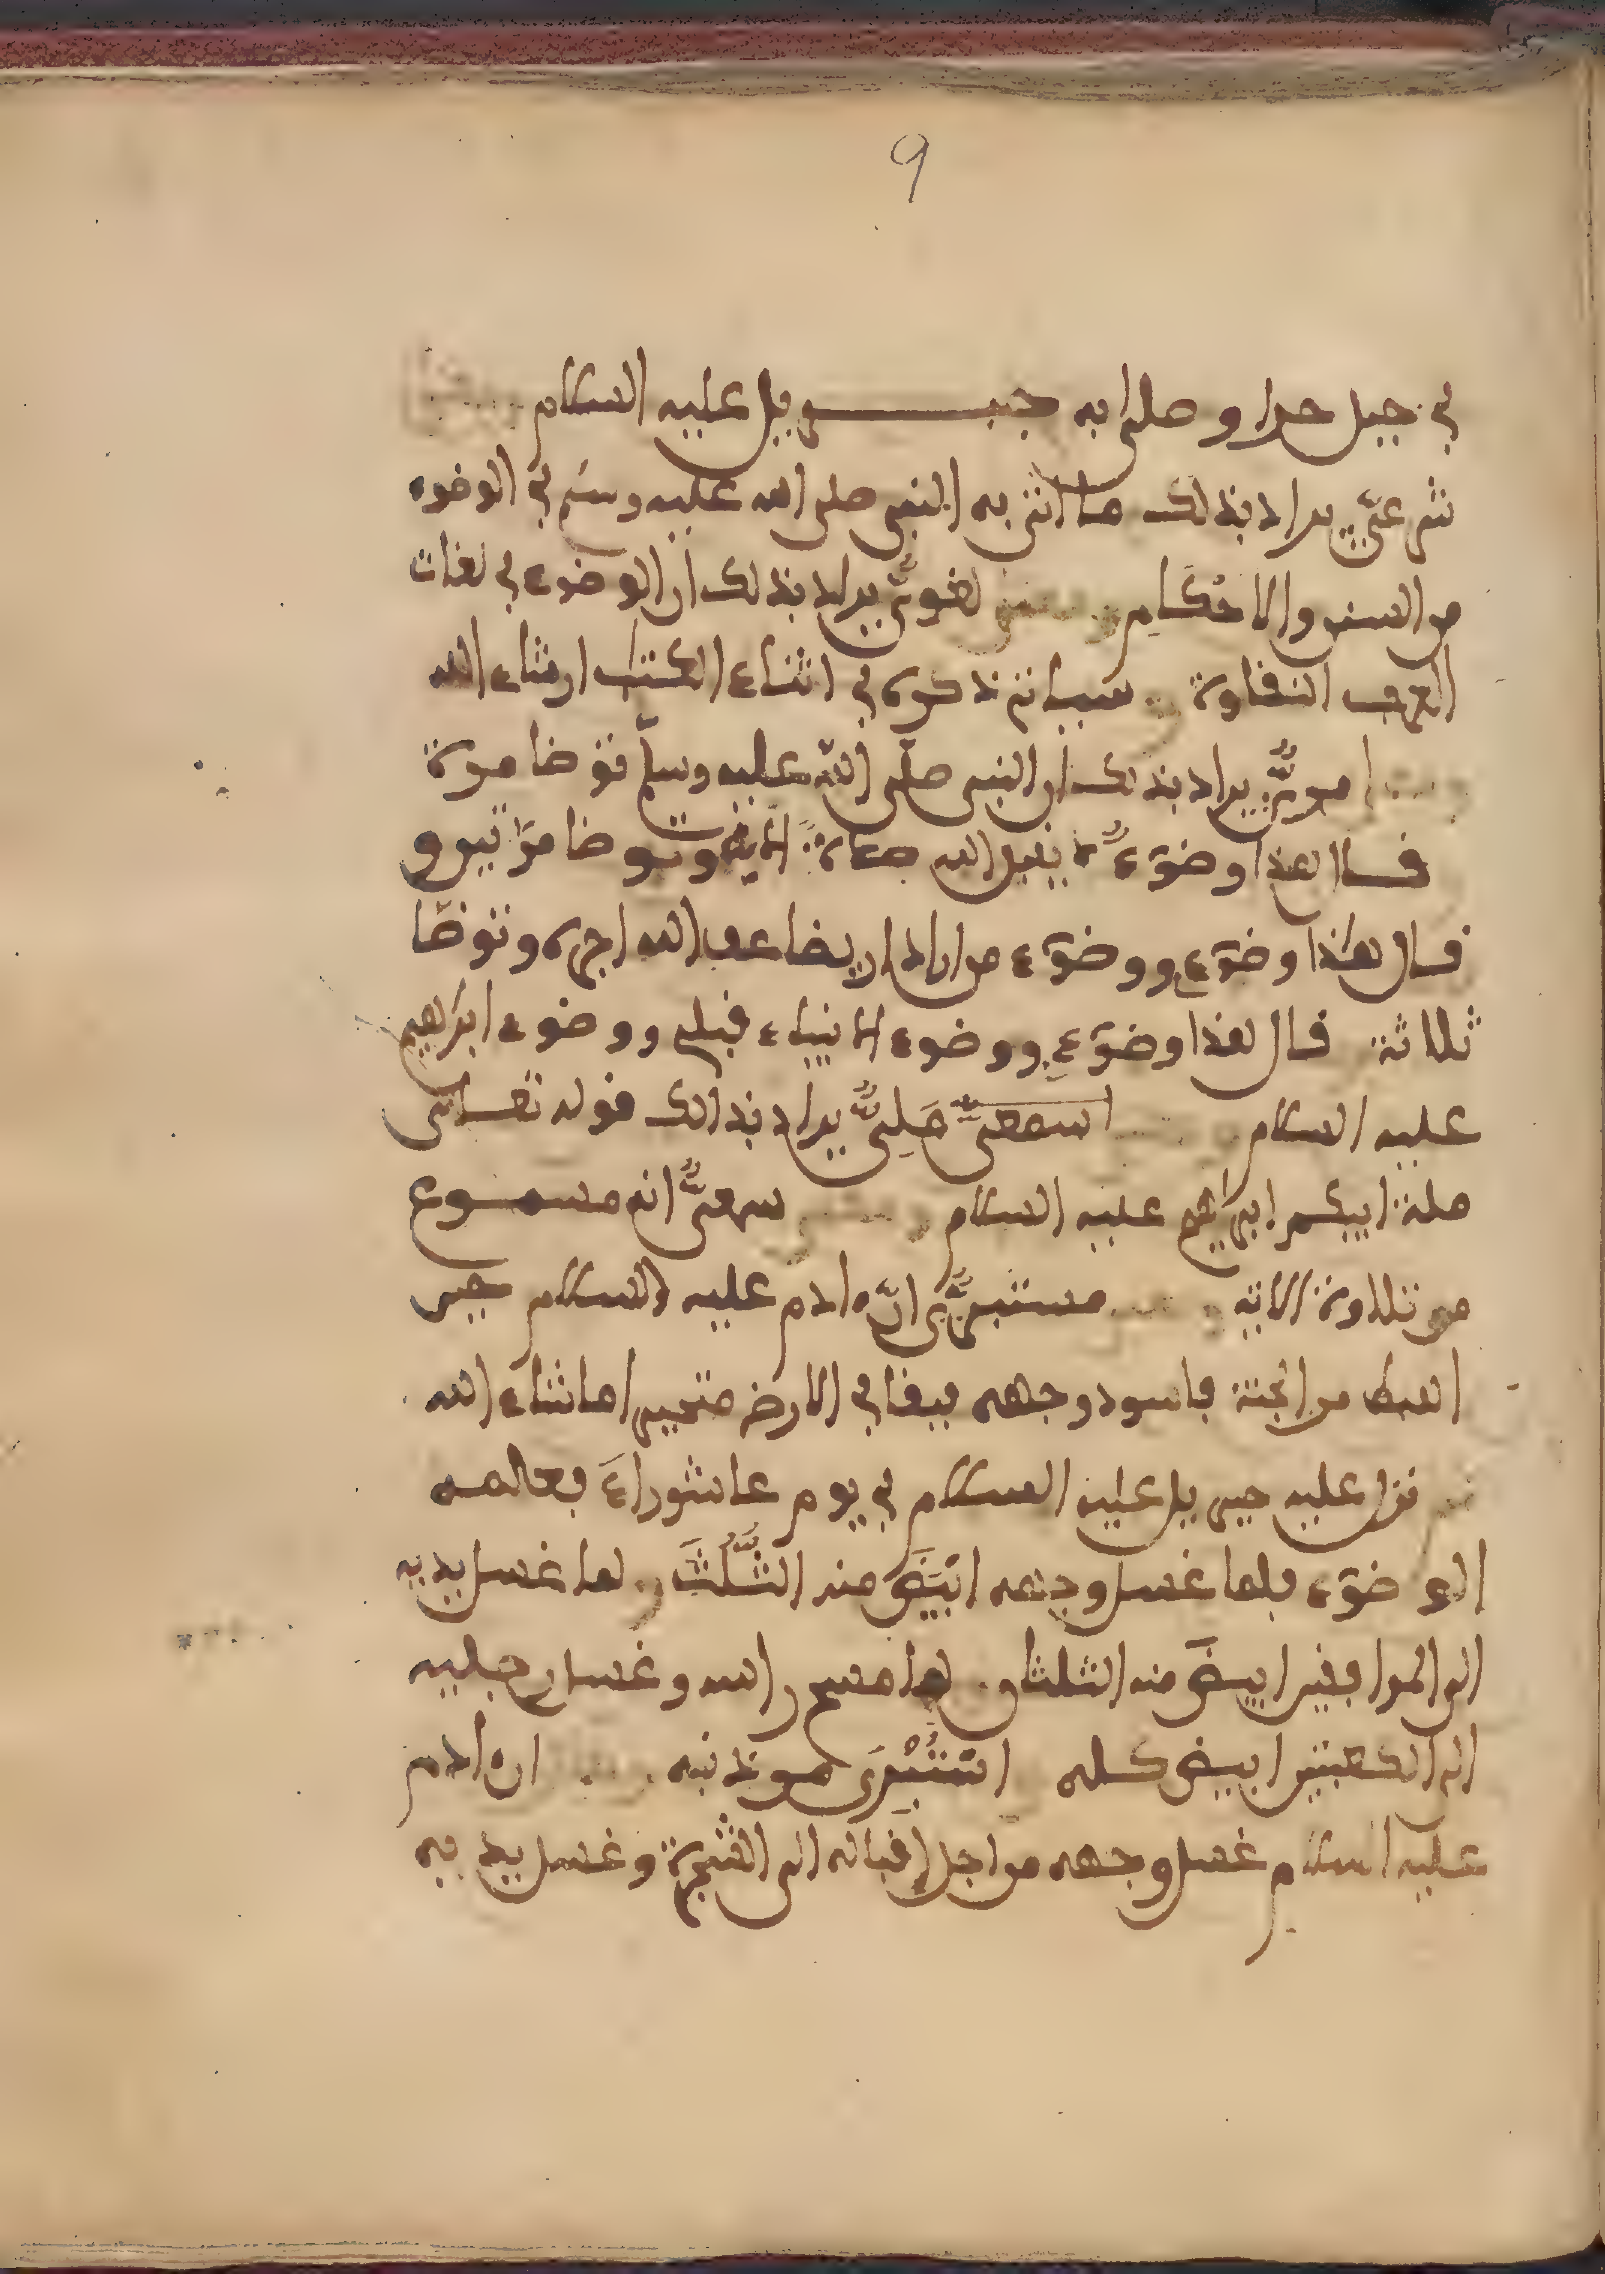 9
في جبل حرا وصلى به جبريل عليه السلام
شرعيّ يراد بذلك ما اتى به النبي صلى الله عليه وسلم في الوضوء
من السنن والاحكام لغويّ يراد بذلك ان الوضوء في لغات
العرب النقاوة سياتي ذكره في اثناء الكتب ان شاء الله
مريّ يراد بذلك ان النبي صلى الله عليه وسلم توضا مرة
فقال هذا وضوء يقبل الله صلاة وتوضا مرّتين و
قال هذا وضوء ووضوء من اراد ان يضاعف الله اجره وتوضّا
ثلاثة قال هذا وضوء ووضوء الانبياء قبلي ووضوء ابراهيم
عليه السلام اسمعيّ مليّ يراد بذالك قوله تعالى
ملة ابيكم ابراهيم عليه السلام سمعيّ انه مسموع
من تلاوة الاية مستبريّ انّ ادم عليه السلام حين
اهبط من الجنة فاسود وجهه فبقا في الارض متحير اما شاء الله
نزل عليه جبريل عليه السلام في يوم عاشوراء فعالمه
الوضوء فلما غسل وجهه ابيَضّ منه الثُّلُث ولما غسل يديه
الى المرافقين ابيضّ منه الثلثان ولما مسح راسه وغسل رجليه
الى الكعبتين ابيض كله استُبْرى من ذنبه ان ادم
عليه السلام غسل وجهه من اجل اقباله الى الشجرة وغسل يديه